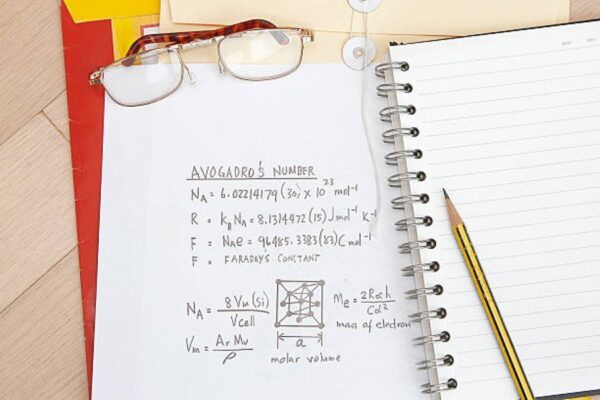 AVOGADRO'S NUMBER
N_A = 6.02214179(30) × 10^23 mol^-1
R = k_B N_A = 8.1314472(15) J mol^-1 K^-1
F = N_A e = 96485.3383(83) C mol^-1
F = FARADAYS CONSTANT
N_A = 8 V_m (Si) / V cell
a
M_e = 2 R∞ h / C α^2
mass of electron
V_m = A_r M_u / ρ
molar volume